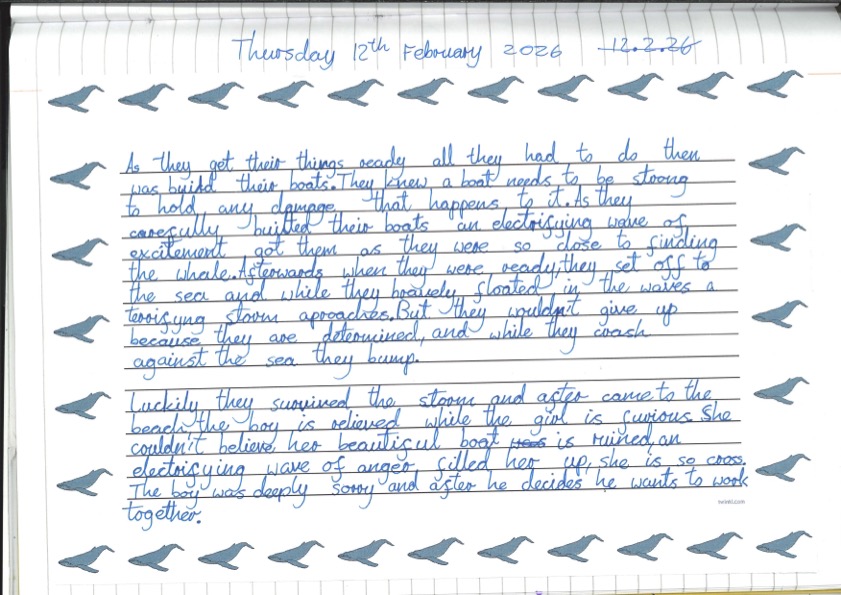 Thursday 12th February 2026 12.2.26
As they get their things ready all they had to do then
was buyild their boats. They knew a boat needs to be strong
to hold any damage that happens to it. As they
carefully builted their boats an electrifying wave of
excitement got them as they were so close to finding
the whale. Afterwards when they were ready, they set off to
the sea and while they bravely floated in the waves a
terrifyng storm aproaches. But they wouldn't give up
because they are determined, and while they crash
against the sea they bump.
Luckily they survived the storm and after came to the
beach, the boy is relieved while the girl is furious. She
couldn't believe, her beautiful boat is ruined, an
electrifying wave of anger, filled her up, she is so cross.
The boy was deeply sorry and after he decides he wants to work
together.
twinkl.com